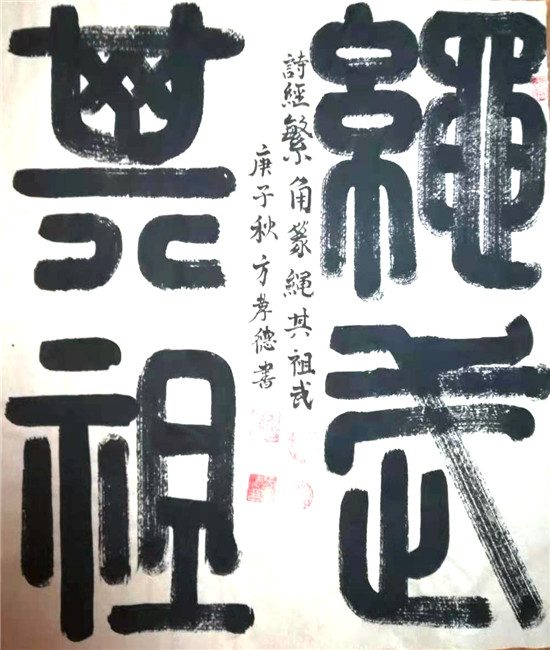 繩武
詩經繁角篆繩其祖武
庚子秋方孝德書
其祖